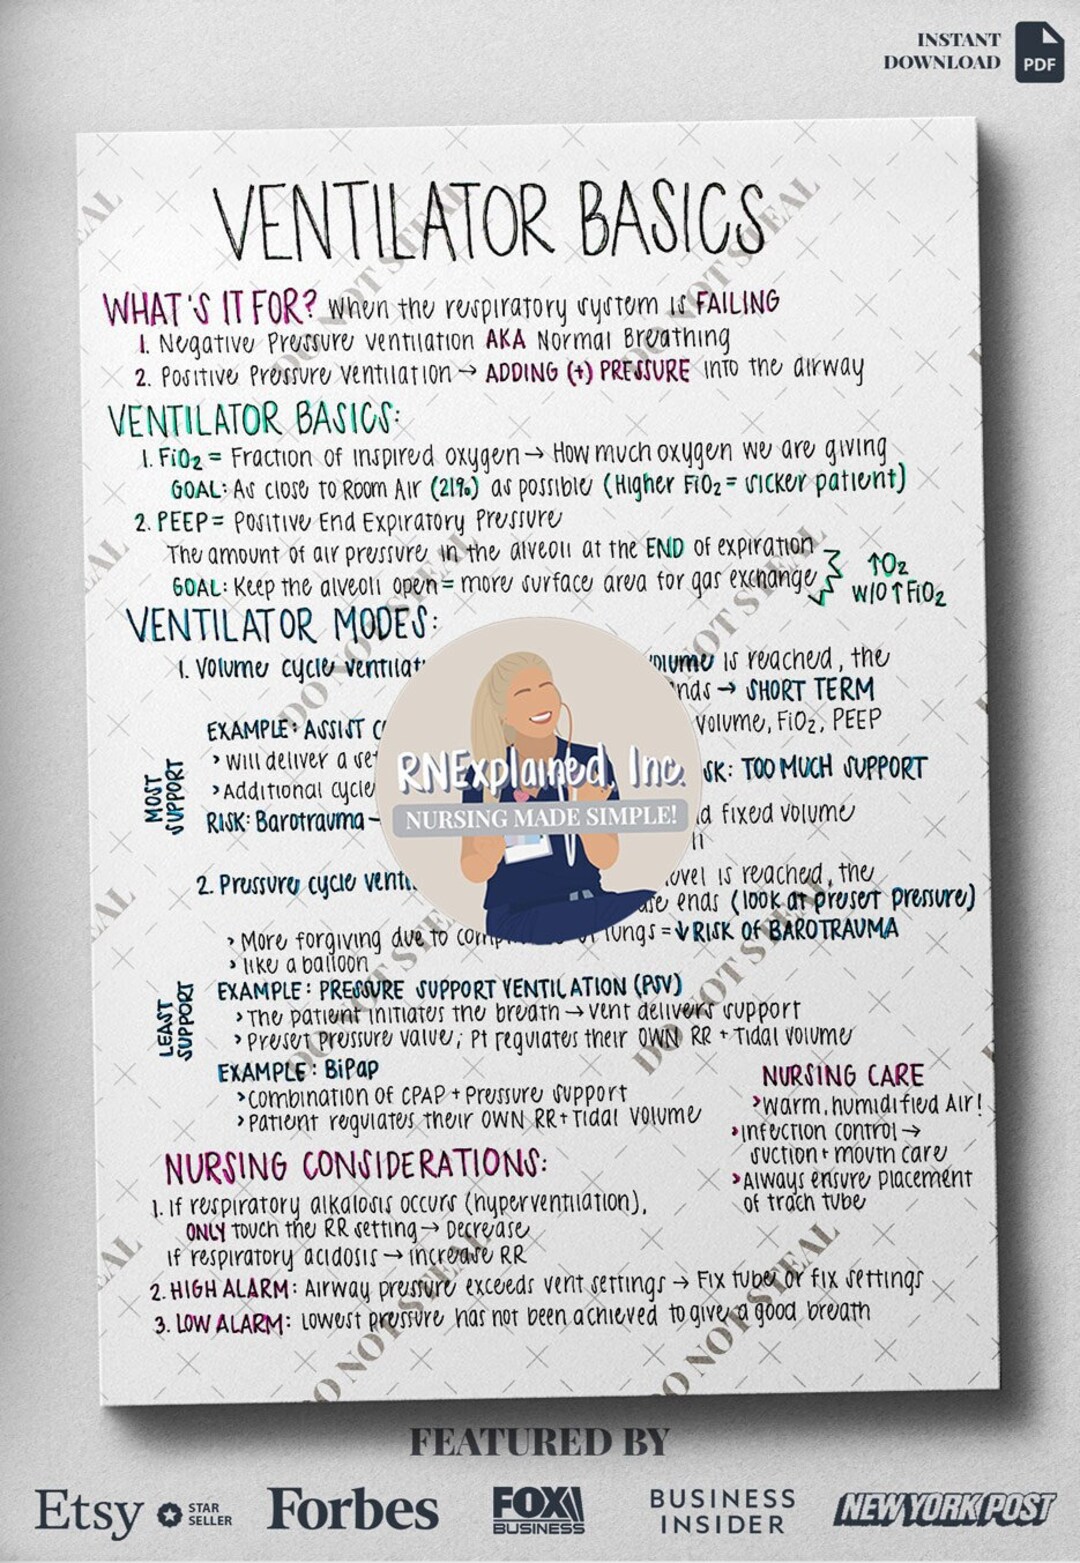 INSTANT
DOWNLOAD
PDF
VENTILATOR BASICS
WHAT'S IT FOR? When the respiratory system is FAILING
1. Negative Pressure Ventilation AKA Normal Breathing
2. Positive Pressure Ventilation → ADDING (+) PRESSURE into the airway
VENTILATOR BASICS:
1. FiO2 = Fraction of inspired oxygen → How much oxygen we are giving
GOAL: As close to Room Air (21%) as possible (Higher FiO2 = sicker patient)
2. PEEP = Positive End Expiratory Pressure
The amount of air pressure in the alveoli at the END of expiration
GOAL: Keep the alveoli open = more surface area for gas exchange
↑O2
W/O ↑FiO2
VENTILATOR MODES:
1. Volume cycle
is reached, the
→ SHORT TERM
EXAMPLE: ASSIST
volume, FiO2, PEEP
MOST
SUPPORT
> Will deliver a
> Additional cycle
TOO MUCH SUPPORT
RISK: Barotrauma
fixed volume
2. Pressure cycle
is reached, the
ends (look at preset pressure)
> More forgiving due to
lungs = ↓ RISK OF BAROTRAUMA
> like a balloon
LEAST
SUPPORT
EXAMPLE: PRESSURE SUPPORT VENTILATION (PSV)
> The patient initiates the breath → vent delivers support
> Preset pressure value; Pt regulates their OWN RR + Tidal Volume
EXAMPLE: BiPap
> Combination of CPAP + Pressure support
> Patient regulates their OWN RR + Tidal Volume
NURSING CARE
> Warm, humidified Air!
> Infection control →
suction + mouth care
> Always ensure placement
of trach tube
NURSING CONSIDERATIONS:
1. If respiratory alkalosis occurs (hyperventilation),
ONLY touch the RR setting → Decrease
If respiratory acidosis → increase RR
2. HIGH ALARM: Airway pressure exceeds vent settings → Fix tube or fix settings
3. LOW ALARM: Lowest pressure has not been achieved to give a good breath
RNExplained, Inc.
NURSING MADE SIMPLE!
DO NOT STEAL
FEATURED BY
Etsy STAR SELLER
Forbes
FOX BUSINESS
BUSINESS INSIDER
NEW YORK POST